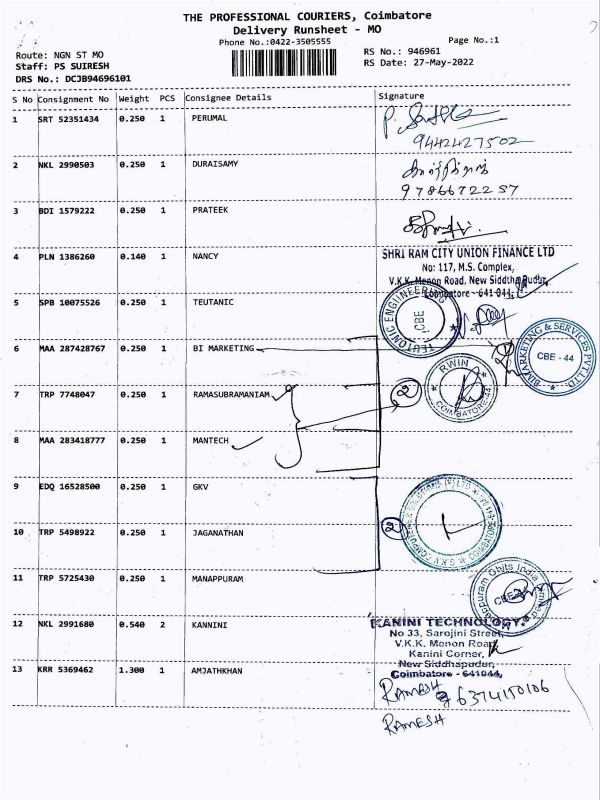 THE PROFESSIONAL COURIERS, Coimbatore
Delivery Runsheet - MO
Phone No.:0422-3505555
Page No.:1
Route: NGN ST MO
RS No.: 946961
Staff: PS SUIRESH
RS Date: 27-May-2022
DRS No.: DCJB94696101
S No Consignment No Weight PCS Consignee Details Signature
1 SRT 52351434 0.250 1 PERUMAL
9442427502
2 NKL 2990503 0.250 1 DURAISAMY
9786672257
3 BDI 1579222 0.250 1 PRATEEK
4 PLN 1386260 0.140 1 NANCY
SHRI RAM CITY UNION FINANCE LTD
No: 117, M.S. Complex,
V.K.K. Menon Road, New Siddha Pudur,
Coimbatore - 641 044.
5 SPB 10075526 0.250 1 TEUTANIC
TEUTONIC ENGINEERING
CBE
6 MAA 287428767 0.250 1 BI MARKETING
BI MARKETING & SERVICES PVT. LTD.
CBE - 44
7 TRP 7748047 0.250 1 RAMASUBRAMANIAM
2
RWIN
COIMBATORE-44
8 MAA 283418777 0.250 1 MANTECH
9 EDQ 16528500 0.250 1 GKV
10 TRP 5498922 0.250 1 JAGANATHAN
2
11 TRP 5725430 0.250 1 MANAPPURAM
Chits India
CBE
12 NKL 2991680 0.540 2 KANNINI
KANINI TECHNOLOGY.
No 33, Sarojini Street,
V.K.K. Menon Road,
Kanini Corner,
New Siddhapudur,
Coimbatore - 641044.
13 KRR 5369462 1.300 1 AMJATHKHAN
RAMESH
6374150106
RAMESH